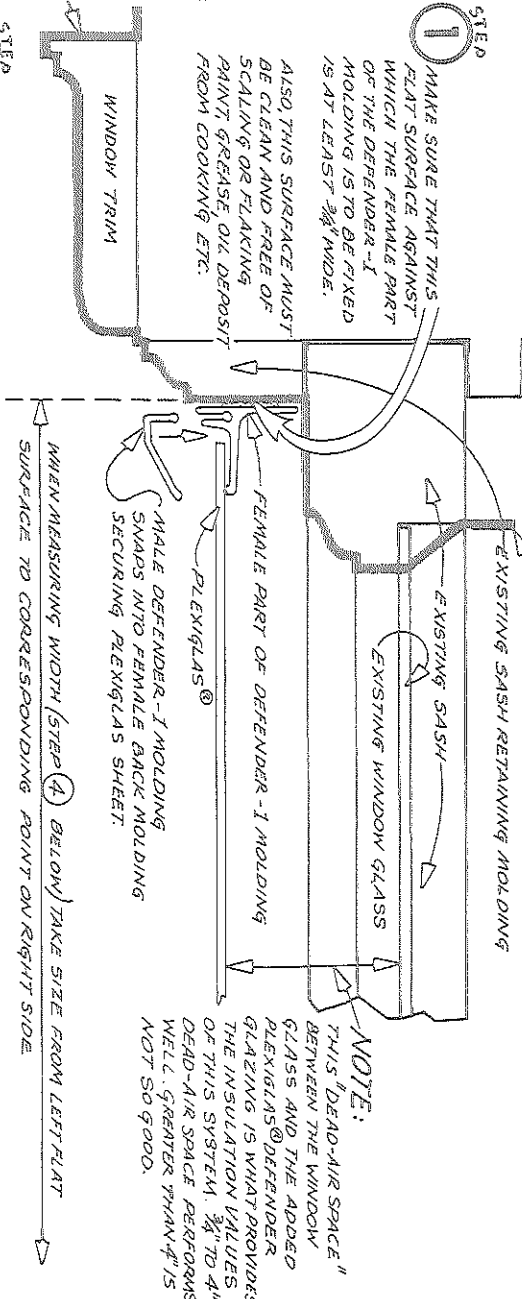 STEP
1
MAKE SURE THAT THIS
FLAT SURFACE AGAINST
WHICH THE FEMALE PART
OF THE DEFENDER-I
MOLDING IS TO BE FIXED
IS AT LEAST 3/4" WIDE.
ALSO, THIS SURFACE MUST
BE CLEAN AND FREE OF
SCALING OR FLAKING
PAINT, GREASE, OIL DEPOSIT
FROM COOKING ETC.
WINDOW TRIM
EXISTING SASH RETAINING MOLDING
EXISTING SASH
EXISTING WINDOW GLASS
FEMALE PART OF DEFENDER-I MOLDING
PLEXIGLAS®
MALE DEFENDER-I MOLDING
SNAPS INTO FEMALE BACK MOLDING
SECURING PLEXIGLAS SHEET.
NOTE:
THIS "DEAD-AIR SPACE"
BETWEEN THE WINDOW
GLASS AND THE ADDED
PLEXIGLAS® DEFENDER
GLAZING IS WHAT PROVIDES
THE INSULATION VALUES
OF THIS SYSTEM. 3/4" TO 4"
DEAD-AIR SPACE PERFORMS
WELL. GREATER THAN 4" IS
NOT SO GOOD.
WHEN MEASURING WIDTH (STEP 4 BELOW) TAKE SIZE FROM LEFT FLAT
SURFACE TO CORRESPONDING POINT ON RIGHT SIDE
STEP